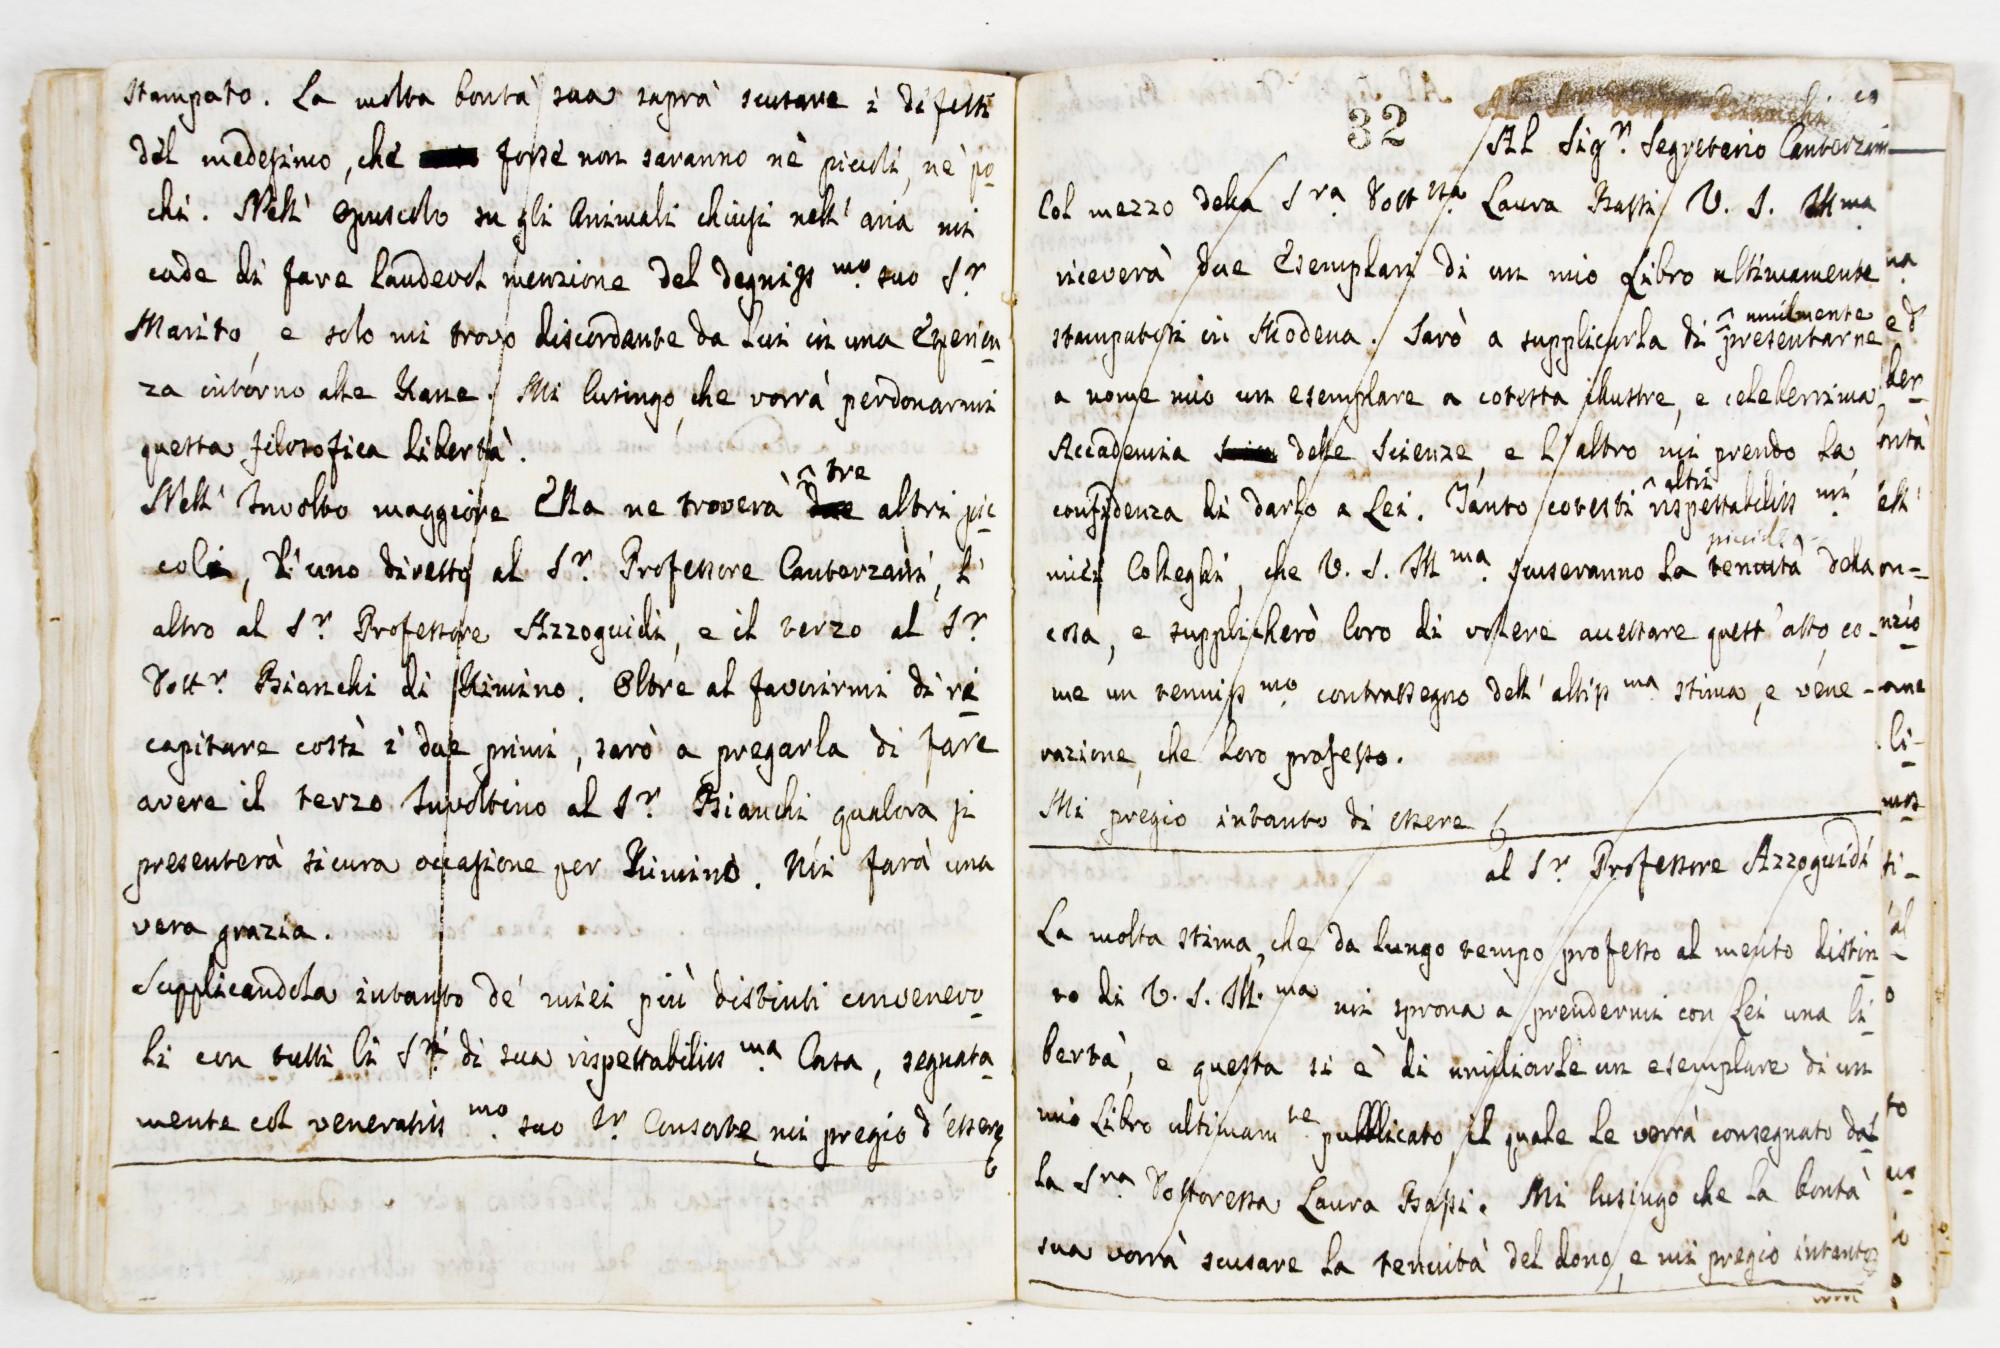 stampato. La molta bontà sua saprà scusare i difetti
del medesimo, che forse non saranno nè piccoli, nè po-
chi. Nell' Opuscolo su gli Animali chiusi nell' aria mi
cade di fare laudevol menzione del degniss.mo suo S.r
Marito, e solo mi trovo discordante da Lui in una Esperien-
za intorno alle Rane. Mi lusingo, che vorrà perdonarmi
questa filosofica libertà.
Nell' Involto maggiore Ella ne troverà tre altri pic-
coli, l'uno diretto al S.r Professore Canterzani, l'
altro al S.r Professore Azzoguidi, e il terzo al S.r
Dott.r Bianchi di Rimino. Oltre al favorirmi di re-
capitare costì i due primi, sarò a pregarla di fare
avere il terzo Involtino al S.r Bianchi qualora si
presenterà sicura occasione per Rimino. Mi farà una
vera grazia.
Supplicandola intanto de' miei più distinti convenevo-
li con tutti li S.ri di sua rispettabiliss.ma Casa, segnata-
mente col veneratiss.mo suo S.r Consorte, mi pregio d'essere
32
Al Sig.r Segretario Canterzani
Col mezzo della S.ra Dott.ssa Laura Bassi V. S. Ill.ma
riceverà due Esemplari di un mio Libro ultimamente
stampatosi in Modena. Sarò a supplicarla di umilmente presentarne
a nome mio un esemplare a cotesta illustre, e celeberrima
Accademia delle Scienze, e l'altro mi prendo la
confidenza di darlo a Lei. Tanto cotesti altri rispettabiliss.mi
miei Colleghi, che V. S. Ill.ma scuseranno la tenuità della
cosa, e supplicherò loro di volere accettare quest'atto, co-
me un tenuiss.mo contrassegno dell' altiss.ma stima, e vene-
razione, che loro professo.
Mi pregio intanto di essere
al S.r Professore Azzoguidi
La molta stima, che da lungo tempo professo al merito distin-
to di V. S. Ill.ma mi sprona a prendermi con Lei una li-
bertà, e questa si è di umiliarle un esemplare di un
mio Libro ultimam.te pubblicato, il quale le verrà consegnato dal-
la S.ra Dottoressa Laura Bassi. Mi lusingo che la bontà
sua vorrà scusare la tenuità del dono, e mi pregio intanto